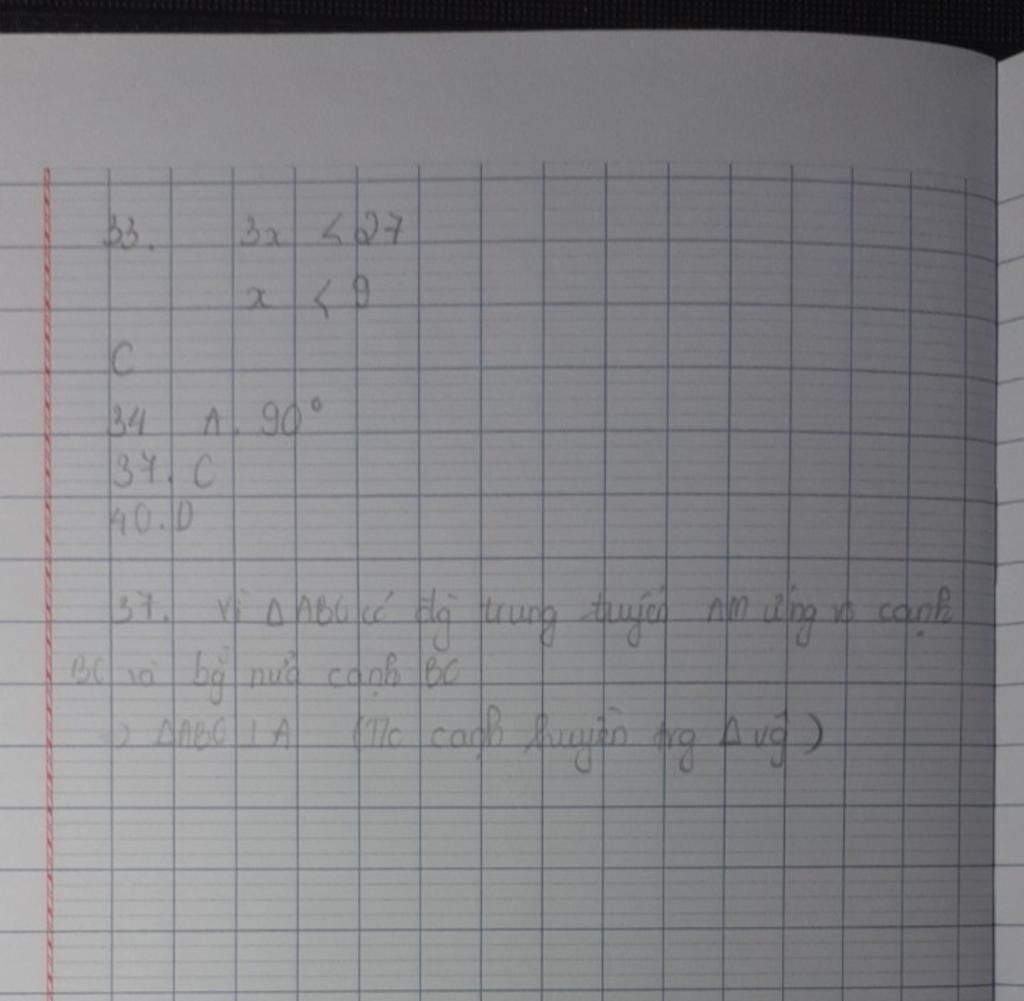 33. 3x < 27
x < 9
C
34 A. 90°
37. C
40. D
37. Vì ΔABC có đg̀ trung tuyến AM ứng vs cạnh
BC và bg̀ nửa cạnh BC
=> ΔABC ⊥ A (T/c cạnh huyền trg Δ vg̀)